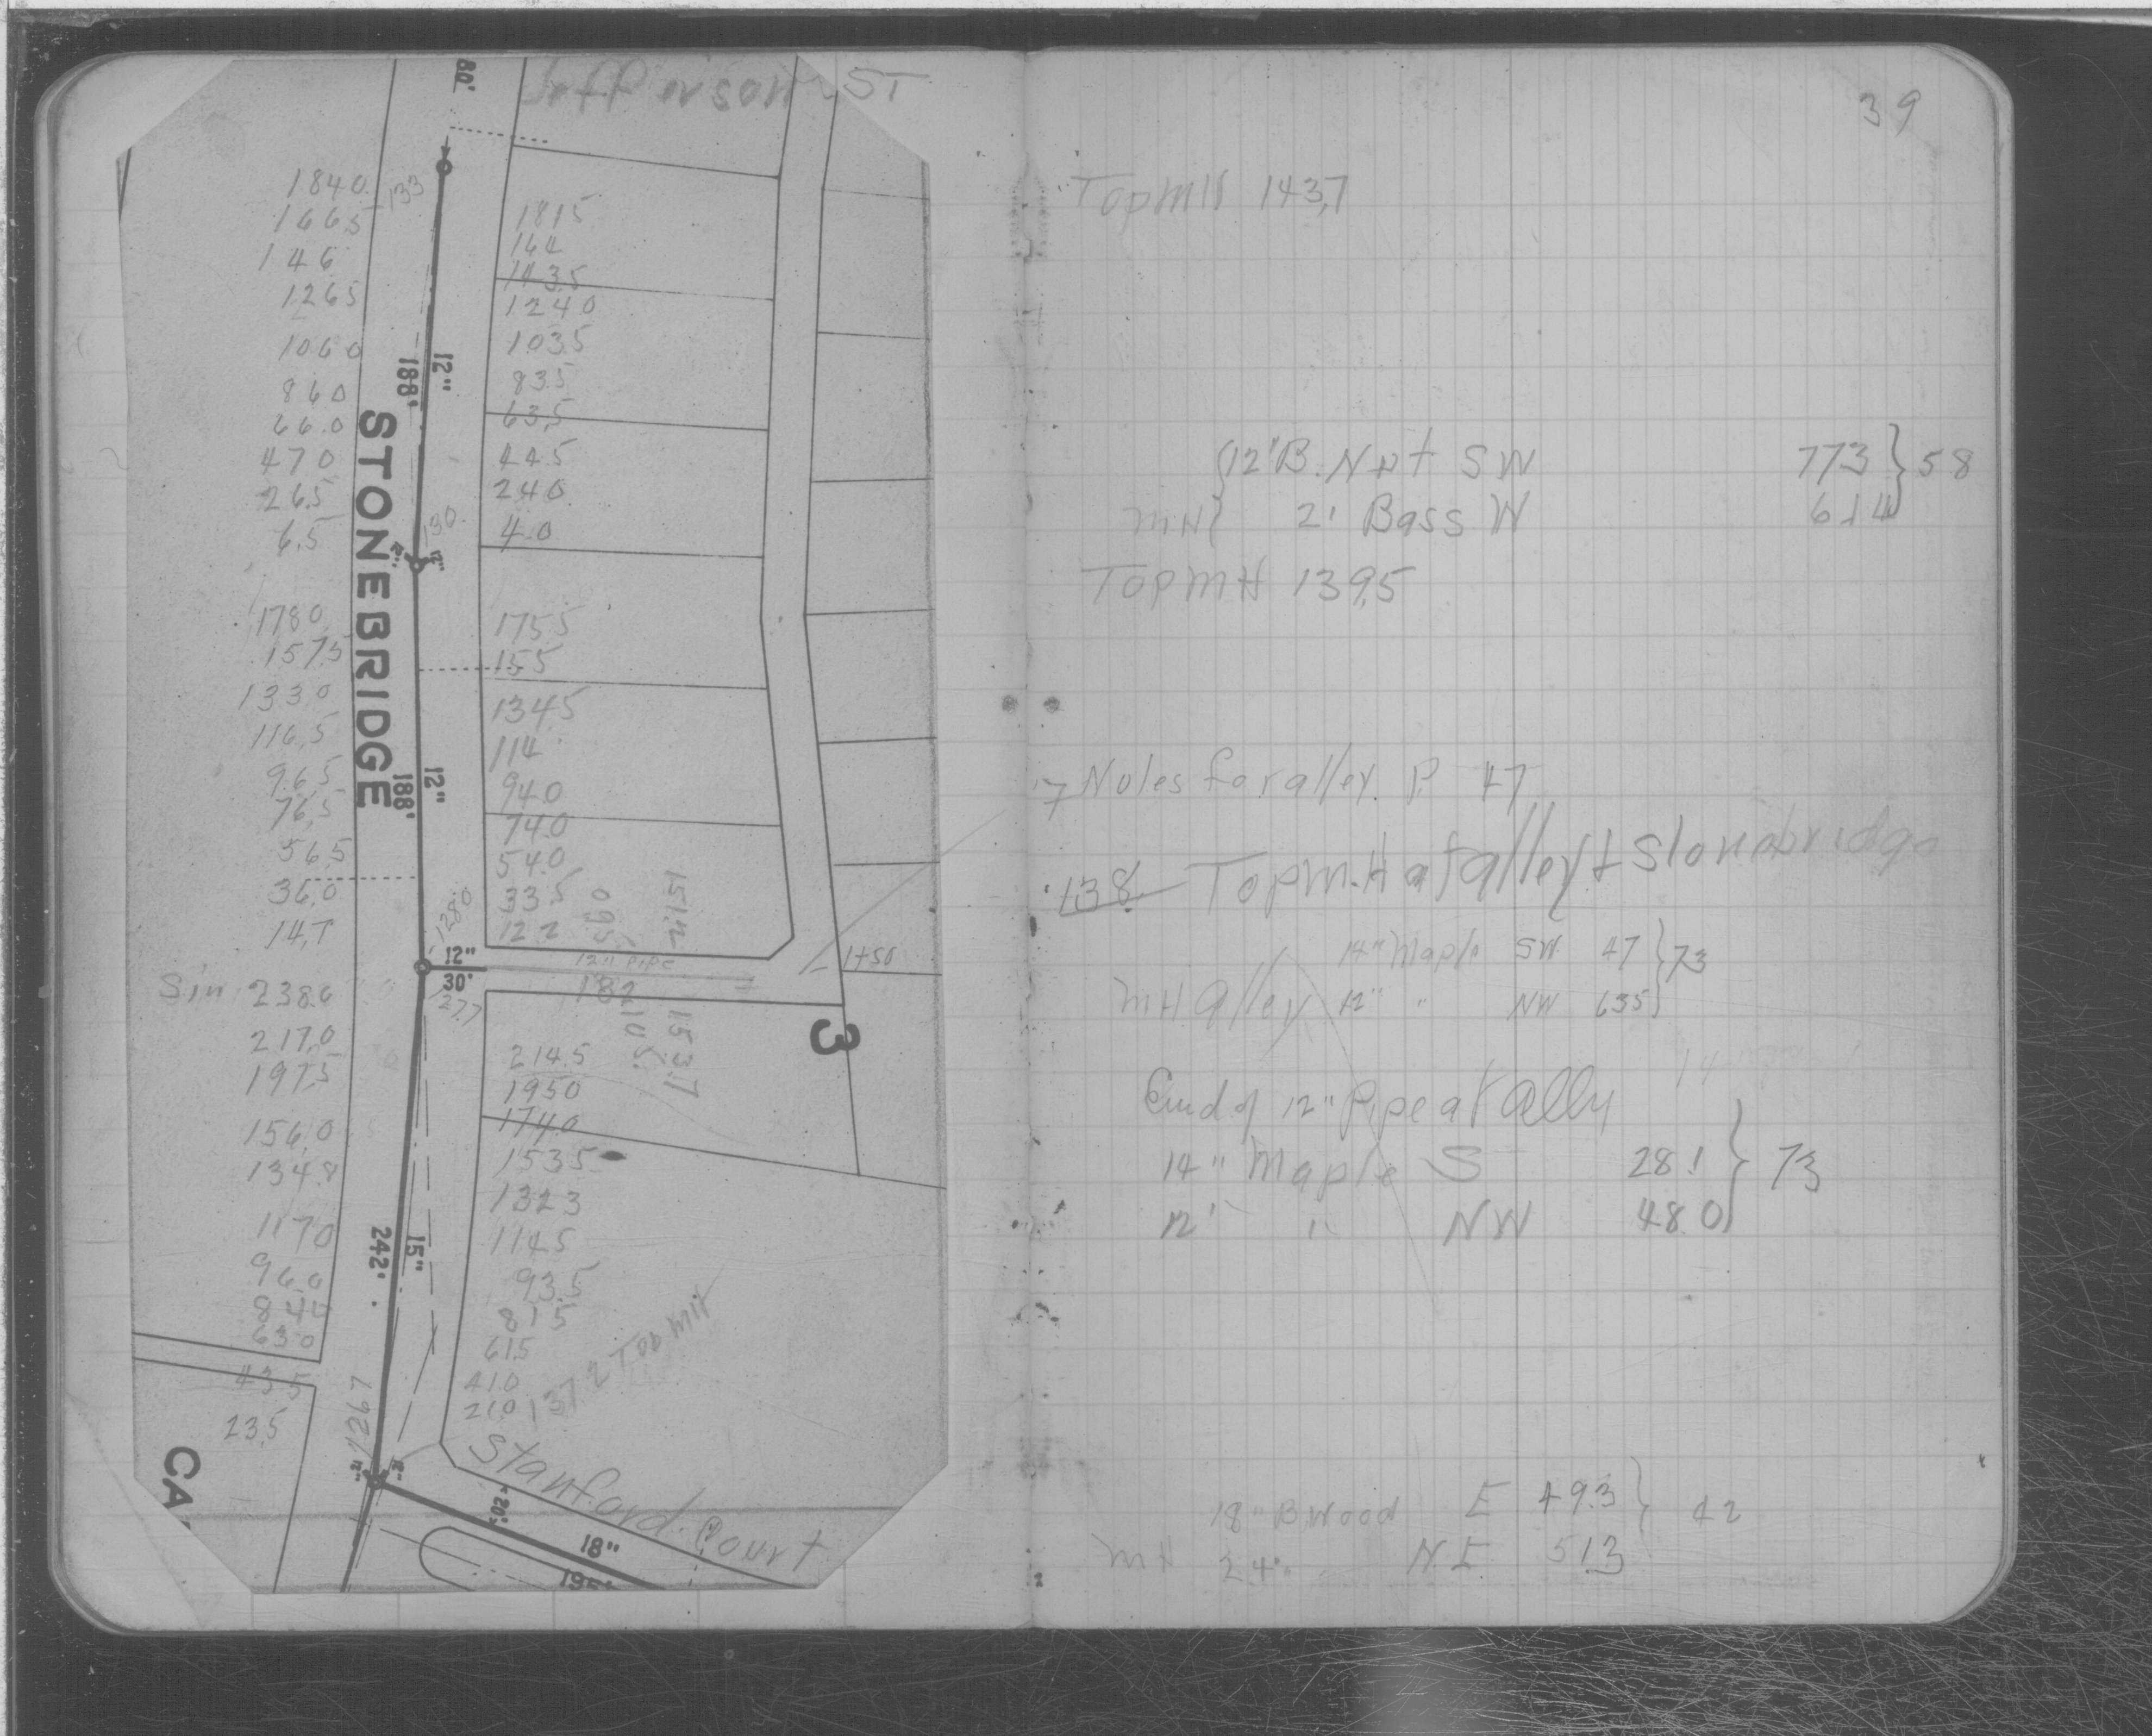 Jefferson ST
80'
1840
133
1665
146
1265
1060
860
66.0
470
265
6.5
1815
144
1435
1240
1035
835
63.5
445
240
4.0
12"
188'
STONEBRIDGE
130
1780
157.5
1330
116.5
96.5
76.5
56.5
36.0
14.7
1755
155
1345
114
940
740
540
335
122
12"
188'
128.0
09.5
151.2
12"
30'
12" Pipe
182
1+50
127.7
210.5
153.7
3
Sin 238.6
217.0
197.5
156.0
134.8
1170
96.0
840
630
43.5
23.5
214.5
1950
1740
1535
1323
1145
93.5
815
615
410
210
15"
242'
137.2 Top MH
126.7
CA
12"
8"
Stanford Court
20'
18"
195'
39
Top MH 143.7
12" B. Nut SW 773 } 58
MH 21 Bass W 614
Top MH 139.5
Notes for alley P. 47
138 Top M.H at alley & Stonebridge
14" Maple SW 47 } 73
MH alley 12" " NW 635
End of 12" Pipe at Ally
14" Maple S 28.1 } 73
12" " NW 48.0
18" B.Wood E 49.3 } 42
MH 24" N.E. 51.3